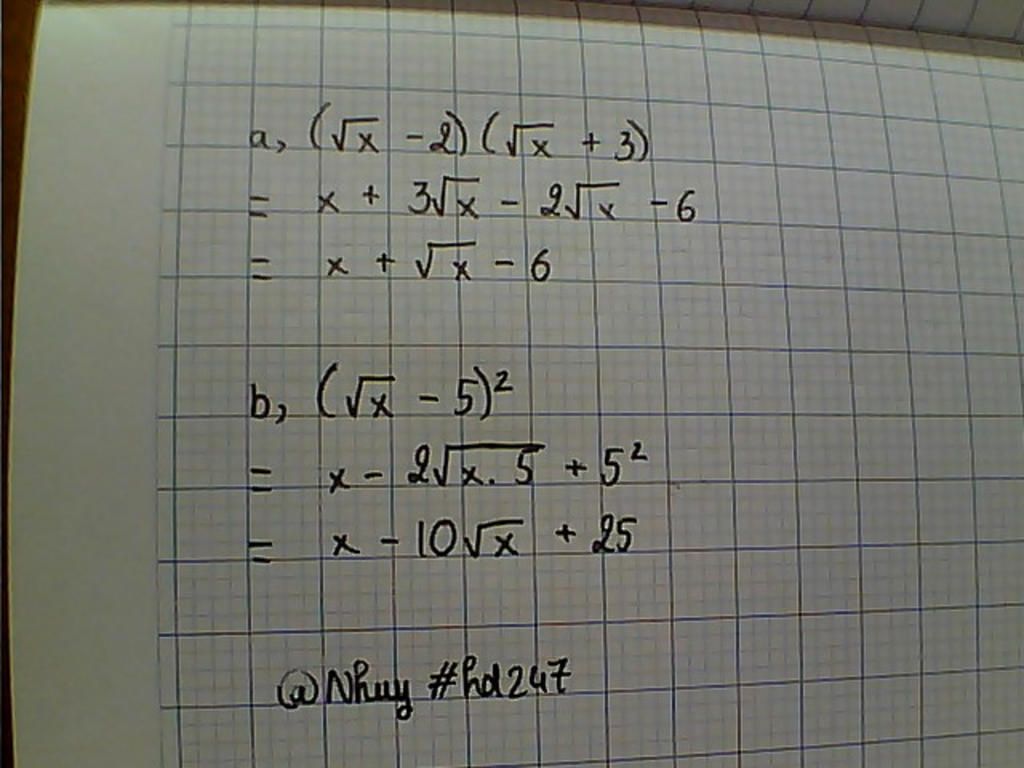 a, (√x - 2)(√x + 3)
= x + 3√x - 2√x - 6
= x + √x - 6
b, (√x - 5)²
= x - 2√(x.5) + 5²
= x - 10√x + 25
@Nhuy #hd247